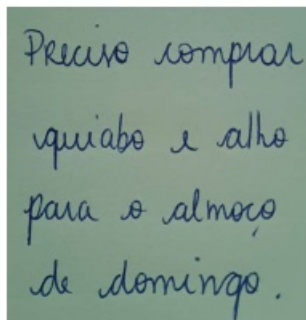 Preciso comprar
quiabo e alho
para o almoço
de domingo.